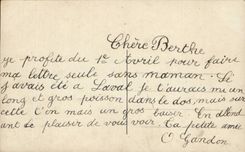 Chère Berthe
je profite du 1er Avril pour faire
ma lettre seule sans maman. Si
j'avais été a Laval je t'aurais mis un
long et gros poisson dans le dos, mais sur
cette c'en mais un gros baiser. En attend
ant le plaisir de vous voir. Ta petite amie
C. Gandon